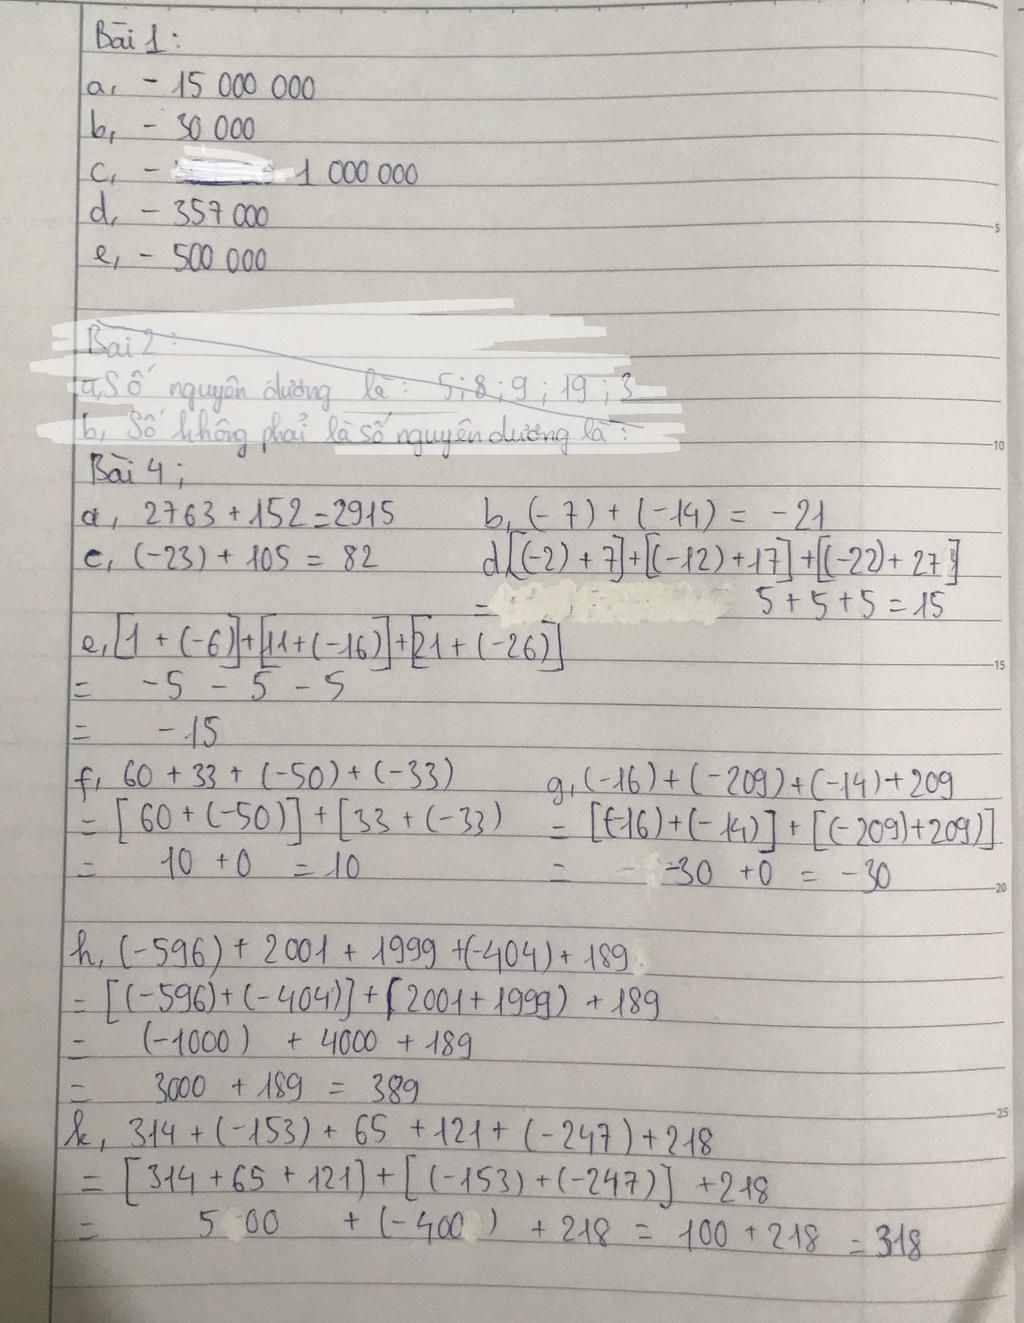 Bài 1:
a, - 15 000 000
b, - 30 000
c, - 1 000 000
d, - 357 000
e, - 500 000
Bài 2:
a, Số nguyên dương là: 5; 8; 9; 19; 3
b, Số không phải là số nguyên dương là:
Bài 4;
a, 2763 + 152 = 2915 b, (-7) + (-14) = -21
c, (-23) + 105 = 82 d, [(-2) + 7] + [(-12) + 17] + [(-22) + 27]
= 5 + 5 + 5 = 15
e, [1 + (-6)] + [11 + (-16)] + [21 + (-26)]
= -5 - 5 - 5
= -15
f, 60 + 33 + (-50) + (-33) g, (-16) + (-209) + (-14) + 209
= [60 + (-50)] + [33 + (-33) = [(-16) + (-14)] + [(-209) + 209)]
= 10 + 0 = 10 = -30 + 0 = -30
h, (-596) + 2001 + 1999 + (-404) + 189
= [(-596) + (-404)] + (2001 + 1999) + 189
= (-1000) + 4000 + 189
= 3000 + 189 = 389
k, 314 + (-153) + 65 + 121 + (-247) + 218
= [314 + 65 + 121] + [(-153) + (-247)] + 218
= 500 + (-400) + 218 = 100 + 218 = 318
5
10
15
20
25